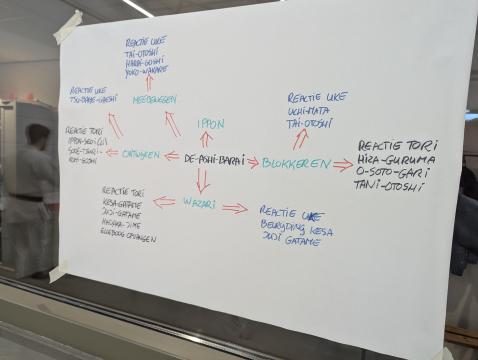 REACTIE UKE
TAI-OTOSHI
HARAI-GOSHI
YOKO-WAKARE
REACTIE UKE
TSUBAME-GAESHI
MEEBEWEGEN
IPPON
REACTIE UKE
UCHI-MATA
TAI-OTOSHI
REACTIE TORI
IPPON-SEOI
SODE-TSURI-
KOMI-GOSHI
ONTWIJKEN
DE-ASHI-BARAI
BLOKKEREN
REACTIE TORI
HIZA-GURUMA
O-SOTO-GARI
TANI-OTOSHI
REACTIE TORI
KESA-GATAME
JUJI-GATAME
HADAKA-JIME
ELLEBOOG OPVANGEN
WAZARI
REACTIE UKE
BEVRIJDING KESA
JUJI GATAME